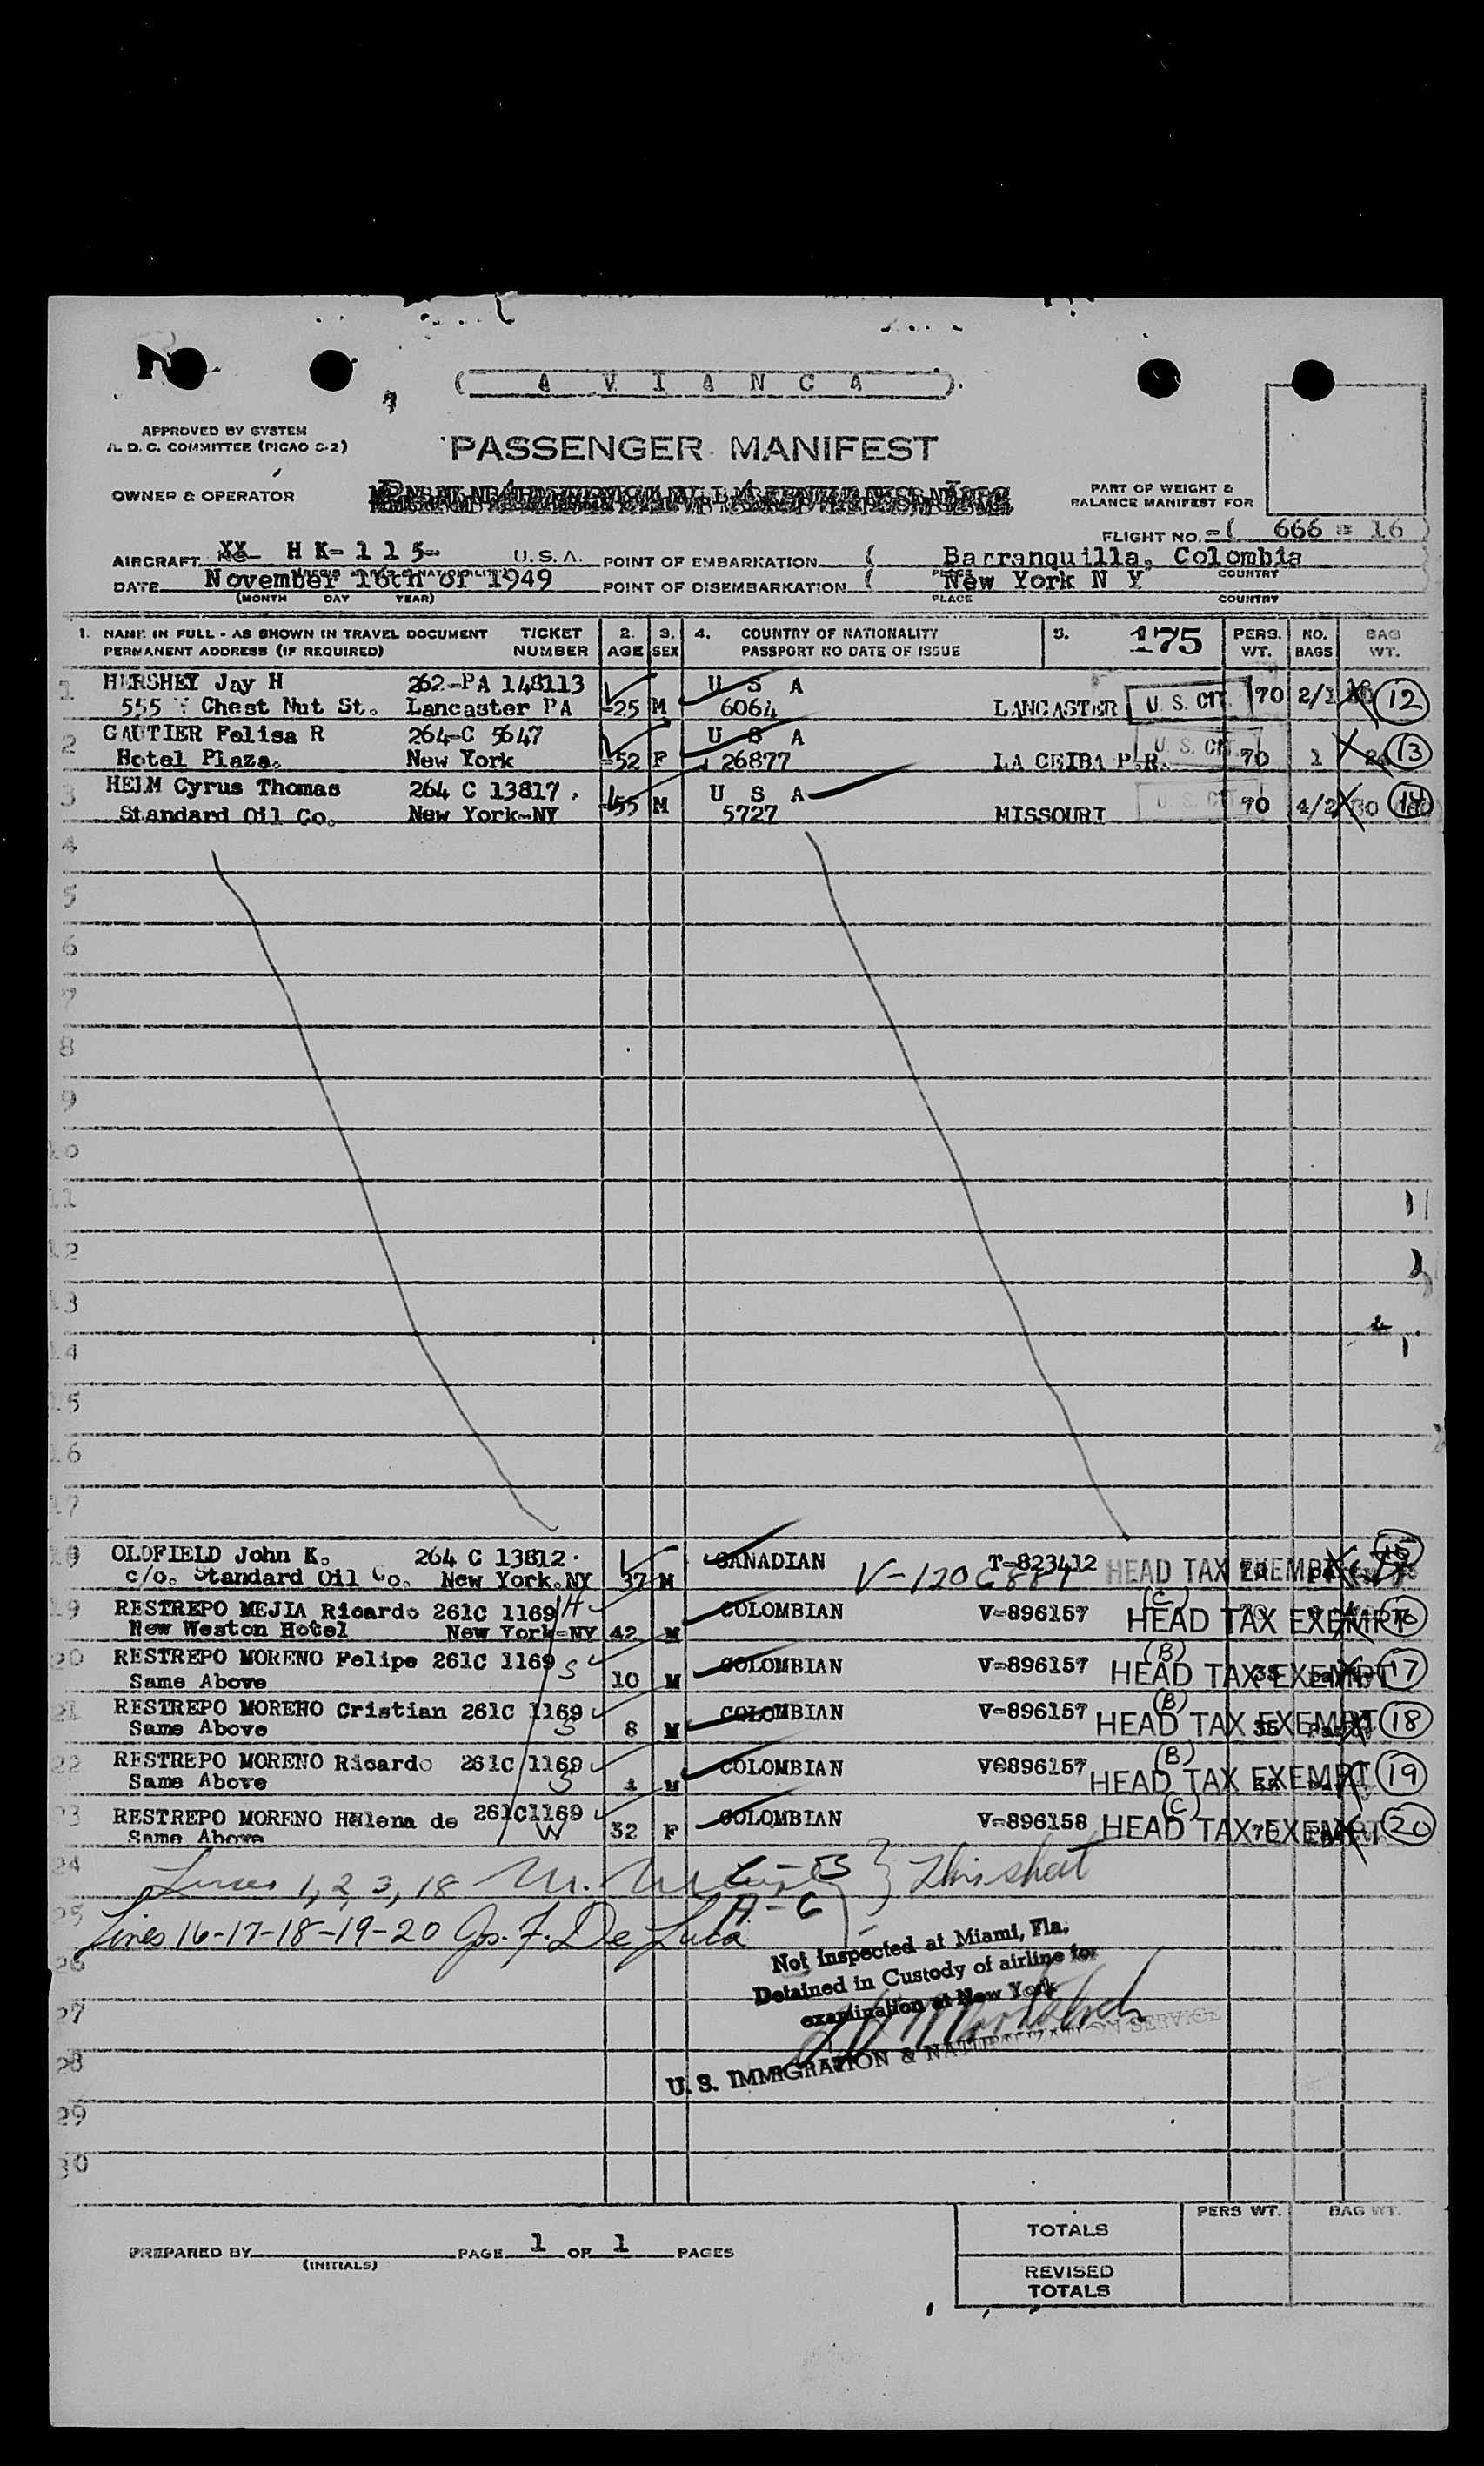 ( A V I A N C A ).
APPROVED BY SYSTEM
A. D. C. COMMITTEE (PICAO S-2)
PASSENGER MANIFEST
OWNER & OPERATOR
PART OF WEIGHT &
BALANCE MANIFEST FOR
FLIGHT NO. -( 666 = 16 )
AIRCRAFT XX H K- 1 1 5- U.S.A. POINT OF EMBARKATION ( Barranquilla, Colombia
PLACE COUNTRY
DATE November 16th of 1949 POINT OF DISEMBARKATION ( New York N Y
(MONTH DAY YEAR) PLACE COUNTRY
1. NAME IN FULL - AS SHOWN IN TRAVEL DOCUMENT TICKET 2. 3. 4. COUNTRY OF NATIONALITY 5. 175 PERS. NO. BAG
PERMANENT ADDRESS (IF REQUIRED) NUMBER AGE SEX PASSPORT NO DATE OF ISSUE WT. BAGS WT.
1 HERSHEY Jay H 262-PA 148113 U S A
555 Chest Nut St. Lancaster PA 25 M 6064 LANCASTER U. S. CIT. 70 2/1 12
2 GAUTIER Felisa R 264-C 5647 U S A
Hotel Plaza. New York 52 F 26877 LA CEIBA P.R. U. S. CIT. 70 1 13
3 HELM Cyrus Thomas 264 C 13817 . U S A
Standard Oil Co. New York-NY 55 M 5727 MISSOURI U. S. CIT. 70 4/2 14
4
5
6
7
8
9
10
11
12
13
14
15
16
17
OLDFIELD John K. 264 C 13812. CANADIAN T-823412 HEAD TAX EXEMPT 15
c/o. Standard Oil Co. New York.NY 37 M
19 RESTREPO MEJIA Ricardo 261C 1169 H COLOMBIAN V-896157 (C) HEAD TAX EXEMPT 16
New Weston Hotel New York-NY 42 M
20 RESTREPO MORENO Felipe 261C 1169 S COLOMBIAN V-896157 (B) HEAD TAX EXEMPT 17
Same Above 10 M
21 RESTREPO MORENO Cristian 261C 1169 S COLOMBIAN V-896157 (B) HEAD TAX EXEMPT 18
Same Above 8 M 35
22 RESTREPO MORENO Ricardo 261C 1169 S COLOMBIAN V@896157 (B) HEAD TAX EXEMPT 19
Same Above 4 M
23 RESTREPO MORENO Helena de 261C1169 W COLOMBIAN V-896158 (C) HEAD TAX EXEMPT 20
Same Above 32 F
24 Lines 1, 2, 3, 18 C - B } This sheet
25 A - C
Lines 16-17-18-19-20 Jos. F. De Luca
26 Not Inspected at Miami, Fla.
Detained in Custody of airline for
27 examination at New York
28 U. S. IMMIGRATION & NATURALIZATION SERVICE
29
30
TOTALS PERS WT. BAG WT.
PREPARED BY (INITIALS) PAGE 1 OF 1 PAGES
REVISED
TOTALS